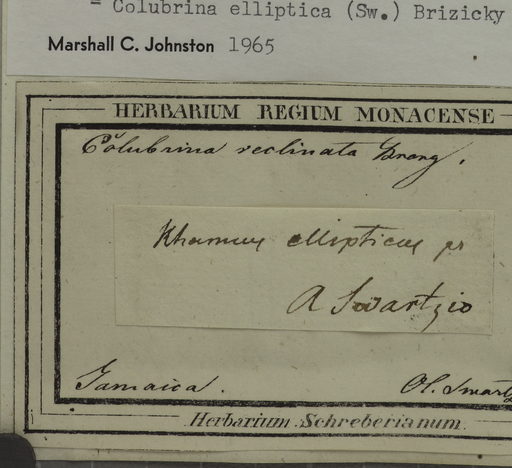 = Colubrina elliptica (Sw.) Brizicky
Marshall C. Johnston 1965
HERBARIUM REGIUM MONACENSE
Colubrina reclinata Brong.
Rhamnus ellipticus
A Swartzio
Jamaica.
Ol. Swartz
Herbarium Schreberianum.